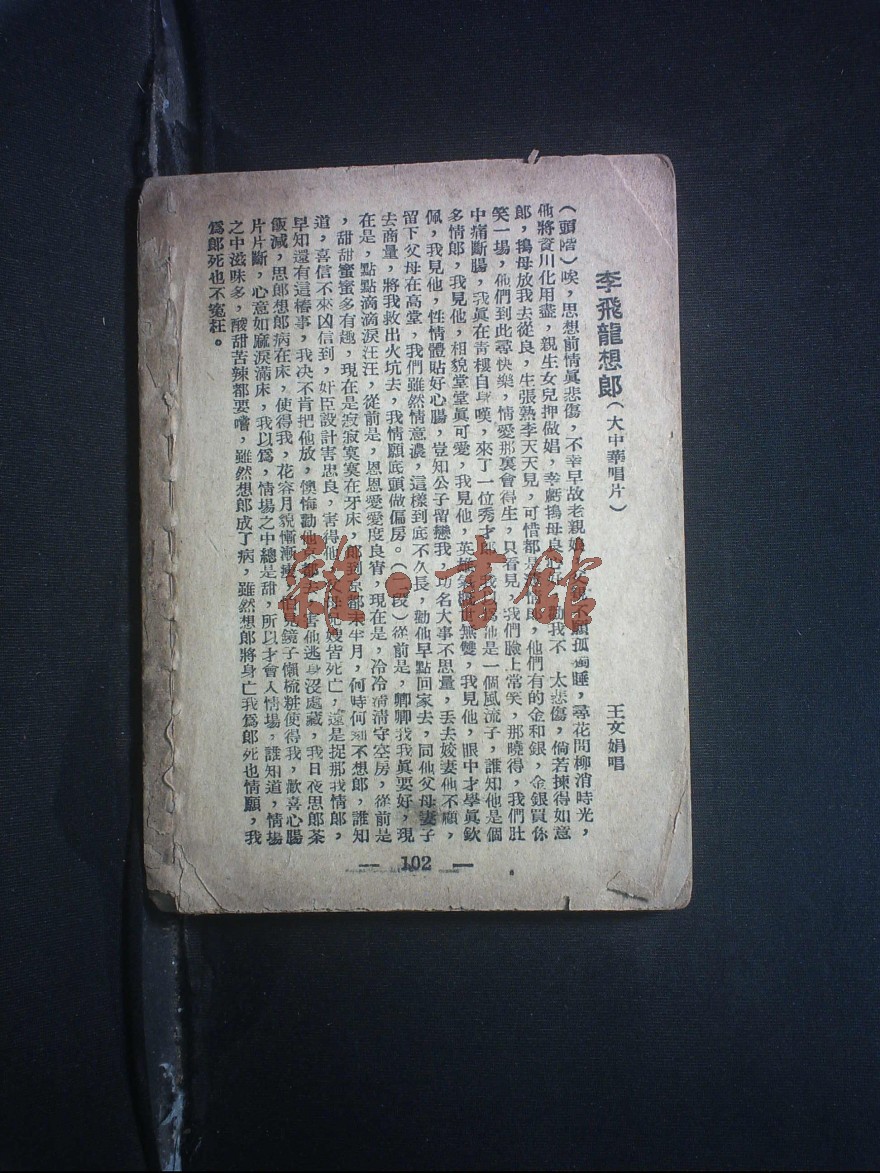 李飛龍想郎（大中華唱片）
王文娟唱
（頭階）唉，思想前情眞悲傷，不幸早故老親娘，孤獨睡，尋花問柳消時光，
他將資川化用盡，親生女兒押做娼，幸虧搗母良心好，勸我不 太悲傷，倘若揀得如意
郞，搗母放我去從良，生張熟李天天見，可惜都是情郎，他們有的金和銀，金銀買你
笑一場，他們到此尋快樂，情愛那裏會得生，只看見，我們臉上常笑，那曉得，我們肚
中痛斷腸，我眞在靑樓自身嘆，來了一位秀才郎，他是一個風流子，誰知他是個
多情郎，我見他，相貌堂堂眞可愛，我見他，英雄無雙，我見他，眼中才學眞欽
佩，我見他，性情體貼好心腸，豈知公子留戀我，功名大事不思量，丢去姣妻他不顧，
留下父母在高堂，我們雖然情意濃，這樣到底不久長，勸他早點回家去，同他父母妻子
去商量，將我救出火坑去，我情願底頭做偏房。（二段）從前是，卿卿我我眞要好，現
在是，點點滴滴淚汪汪，從前是，恩恩愛愛度良宵，現在是，冷冷淸淸守空房，從前是
，甜甜蜜蜜多有趣，現在是寂寂寞寞在牙床，郎到京都未半月，何時何刻不想郎，誰知
道，喜信不來凶信到，奸臣設計害忠良，害得他，兄嫂皆死亡，還是捉那我情郎，
早知還有這樁事，我决不肯把他放，懊悔勸他都去，害他逃身沒處藏，我日夜思郎茶
飯減，思郎想郎病在床，使得我，花容月貌慚漸瘦，怕見鏡子懶梳粧使得我，歡喜心腸
片片斷，心意如麻淚滿床，我以爲，情場之中總是甜，所以才會入情場，誰知道，情場
之中滋味多，酸甜苦辣都要嚐，雖然想郎成了病，雖然想郎將身亡我爲郎死也情願，我
爲郎死也不寃枉。
— 102 —
雜·書館